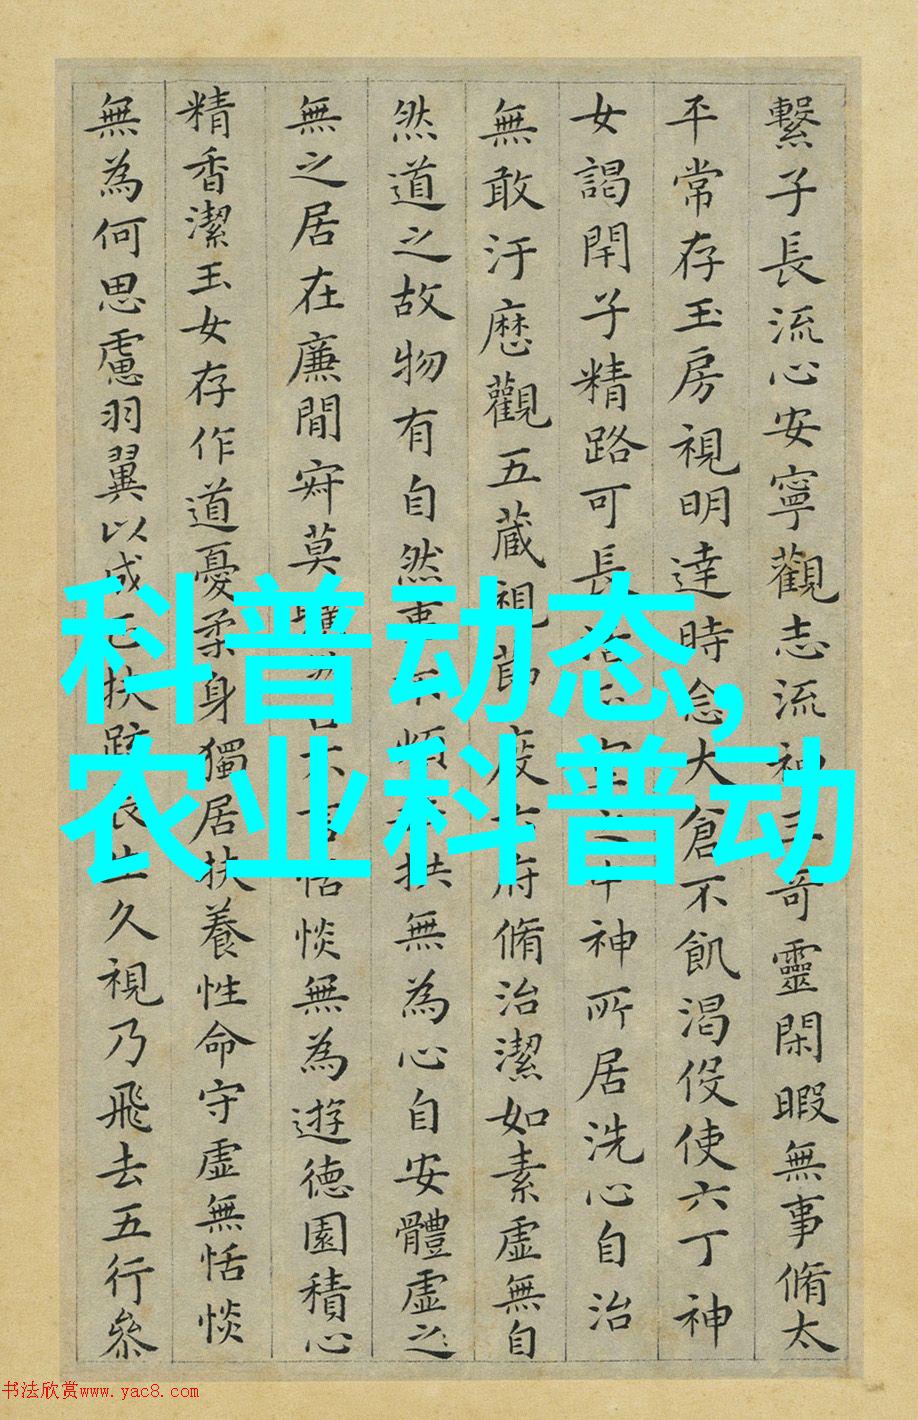 繫子長流心安寧觀志流神三奇靈閑暇無事脩太
平常存玉房視明達時念大倉不飢渴伇使六丁神
女謁閇子精路可長活正室之中神所居洗心自治
無敢汙歴觀五藏視節度六府脩治潔如素虛無自
然道之故物有自然事不煩垂拱無為心自安體虛之
無之居在廉間寂莫曠然口不言恬惔無為遊德園積心
精香潔玉女存作道憂柔身獨居扶養性命守虛無恬惔
無為何思慮羽翼以成正扶疏長生久視乃飛去五行參
科普动态,
农业科普动
书法欣赏www.yac8.com